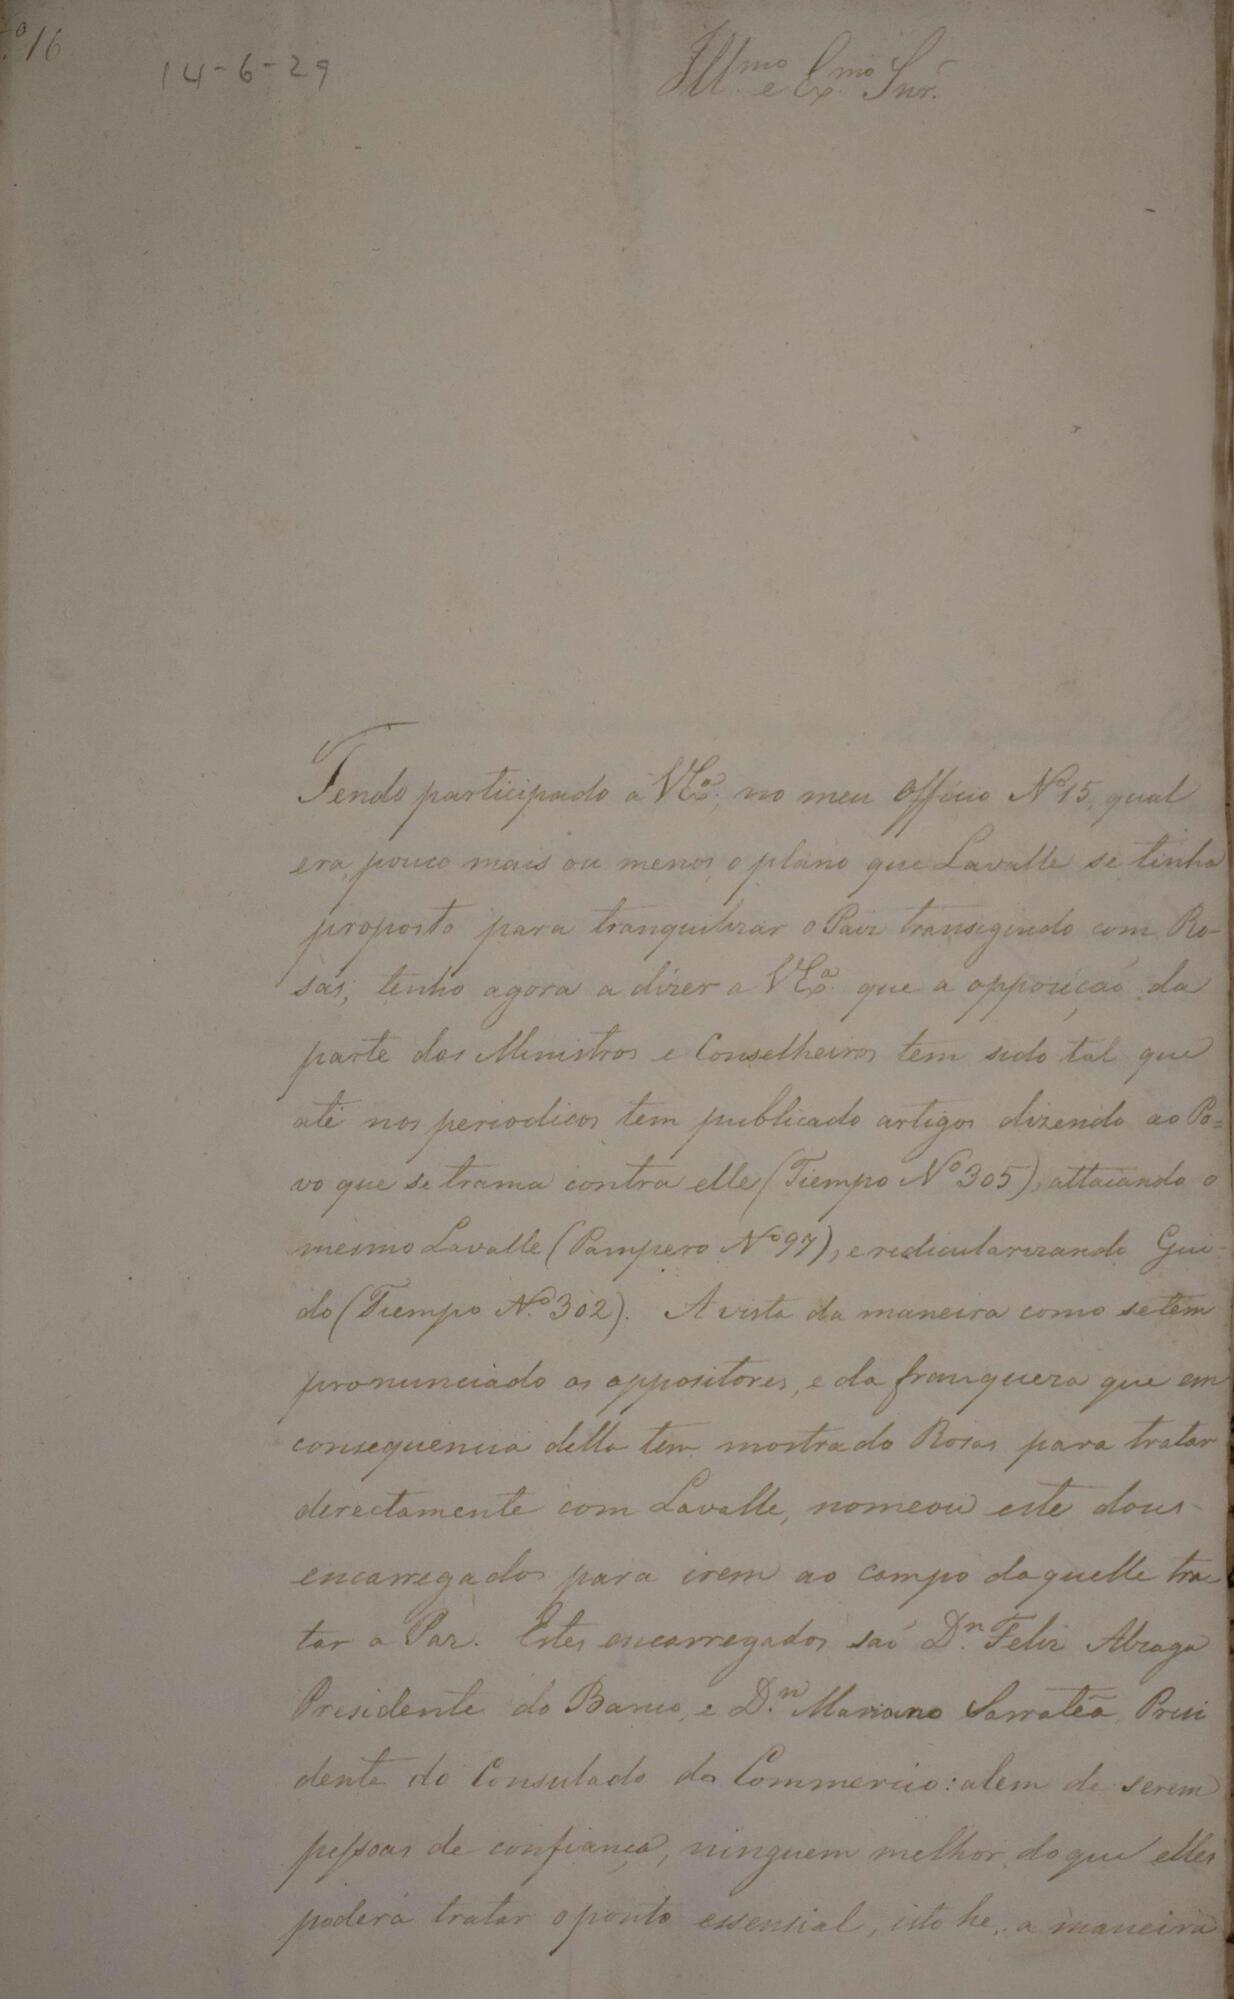 Nº 16
14-6-29
Illmo e Exmo Snr.
Tendo participado a VExª, no meu Officio Nº 15, qual
era, pouco mais ou menos, o plano que Lavalle se tinha
proposto para tranquilizar o Paiz transigindo com Ro-
sas; tenho agora a dizer a VExª que a opposiçaõ da
parte dos Ministros e Conselheiros tem sido tal que
até nos periodicos tem publicado artigos dizendo ao Po=
vo que se trama contra elle (Tiempo Nº 305), attacando o
mesmo Lavalle (Pampero Nº 97), e redicularizando Gui-
do (Tiempo Nº 302). A vista da maneira como se tem
pronunciado os oppositores, e da franqueza que em
consequencia della tem mostrado Rosas para tratar
derectamente com Lavalle, nomeou este dous
encarregados para irem ao campo daquelle tra-
tar a Paz. Estes encarregados saõ Dn. Feliz Alzaga
Presidente do Banco, e Dn. Mariano Sarratéa, Presi
dente do Consulado do Commercio: alem de serem
pessoas de confiança, ninguem melhor do que elles
poderá tratar o ponto essensial, isto he, a maneira